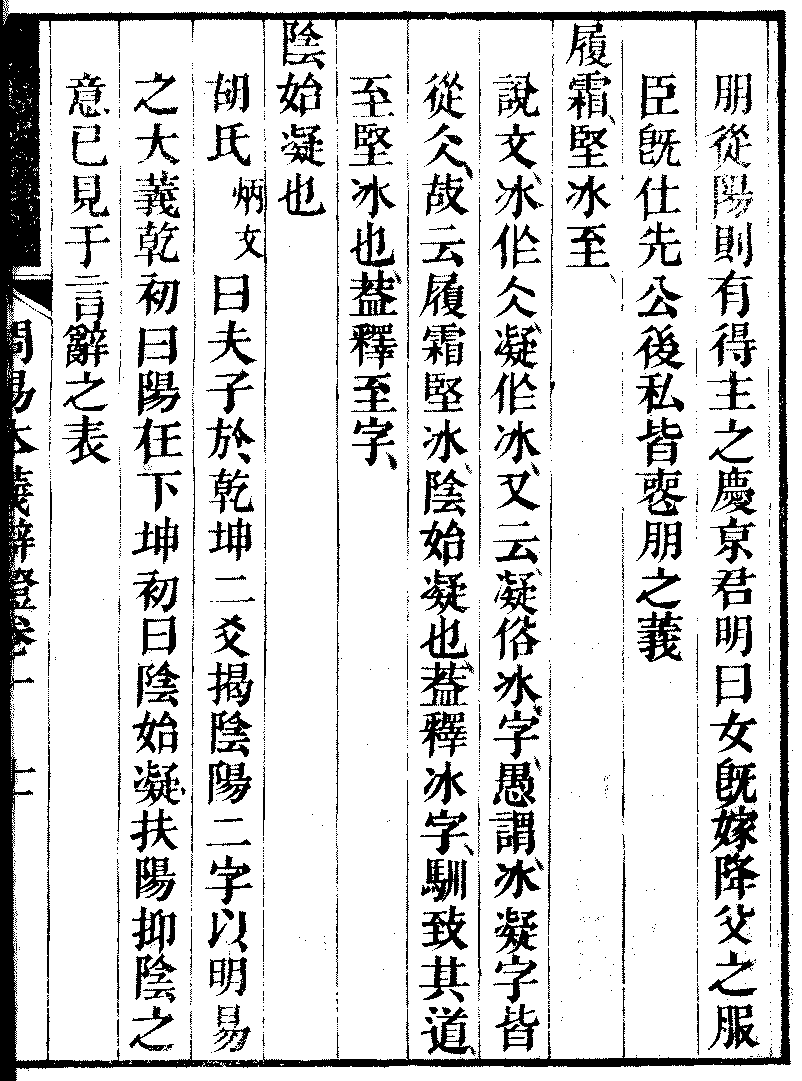 朋從陽則有得主之慶京君明曰女旣嫁降父之服
臣旣仕先公後私皆喪朋之義
履霜堅冰至
說文冰作仌凝作冰又云凝俗冰字愚謂冰凝字皆
從仌故云履霜堅冰陰始凝也葢釋冰字馴致其道
至堅冰也葢釋至字
陰始凝也
胡氏炳文曰夫子於乾坤二爻揭陰陽二字以明易
之大義乾初曰陽在下坤初曰陰始凝扶陽抑陰之
意已見于言辭之表
周易本義辯證卷一